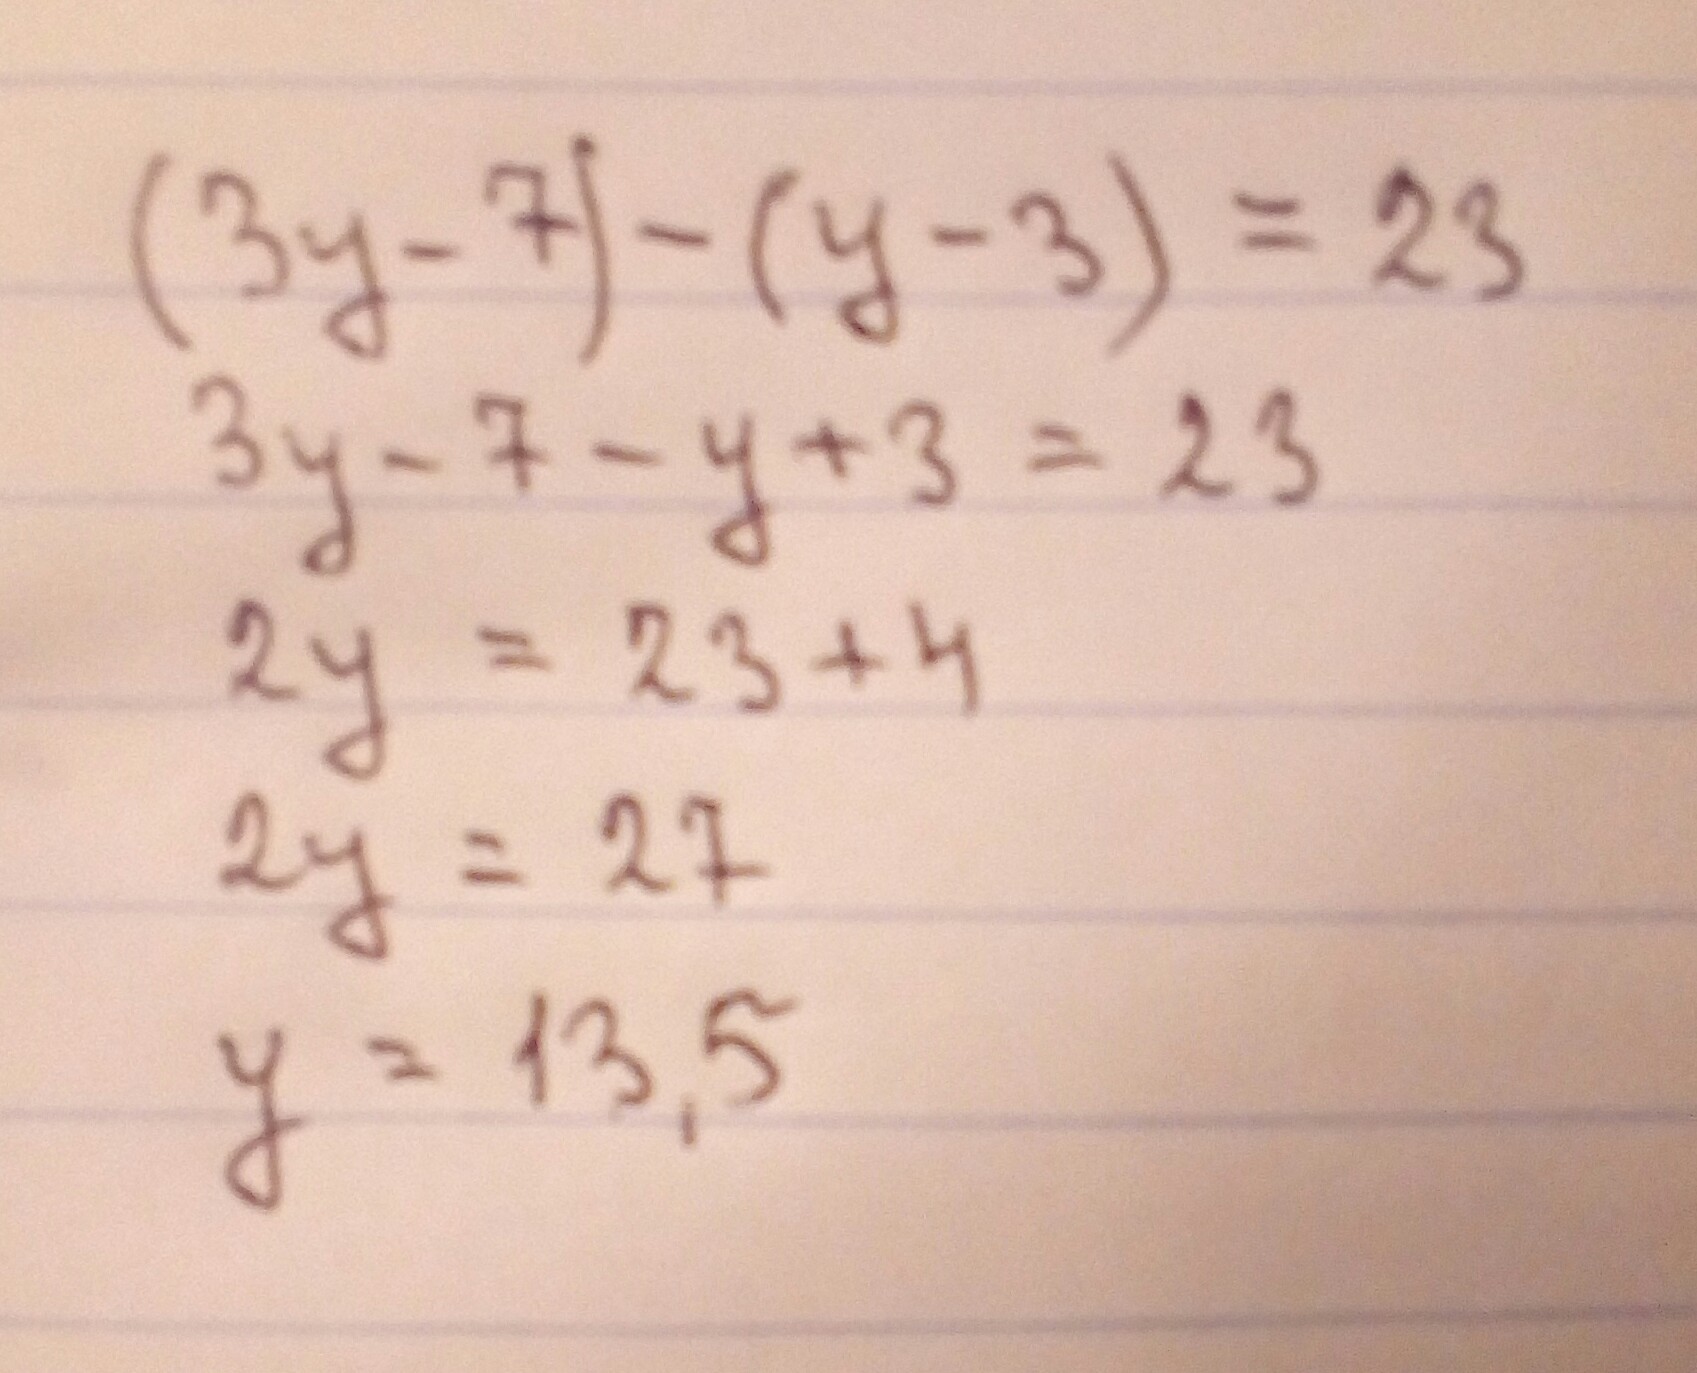 (3y-7)-(y-3) = 23
3y-7-y+3 = 23
2y = 23+4
2y = 27
y = 13,5